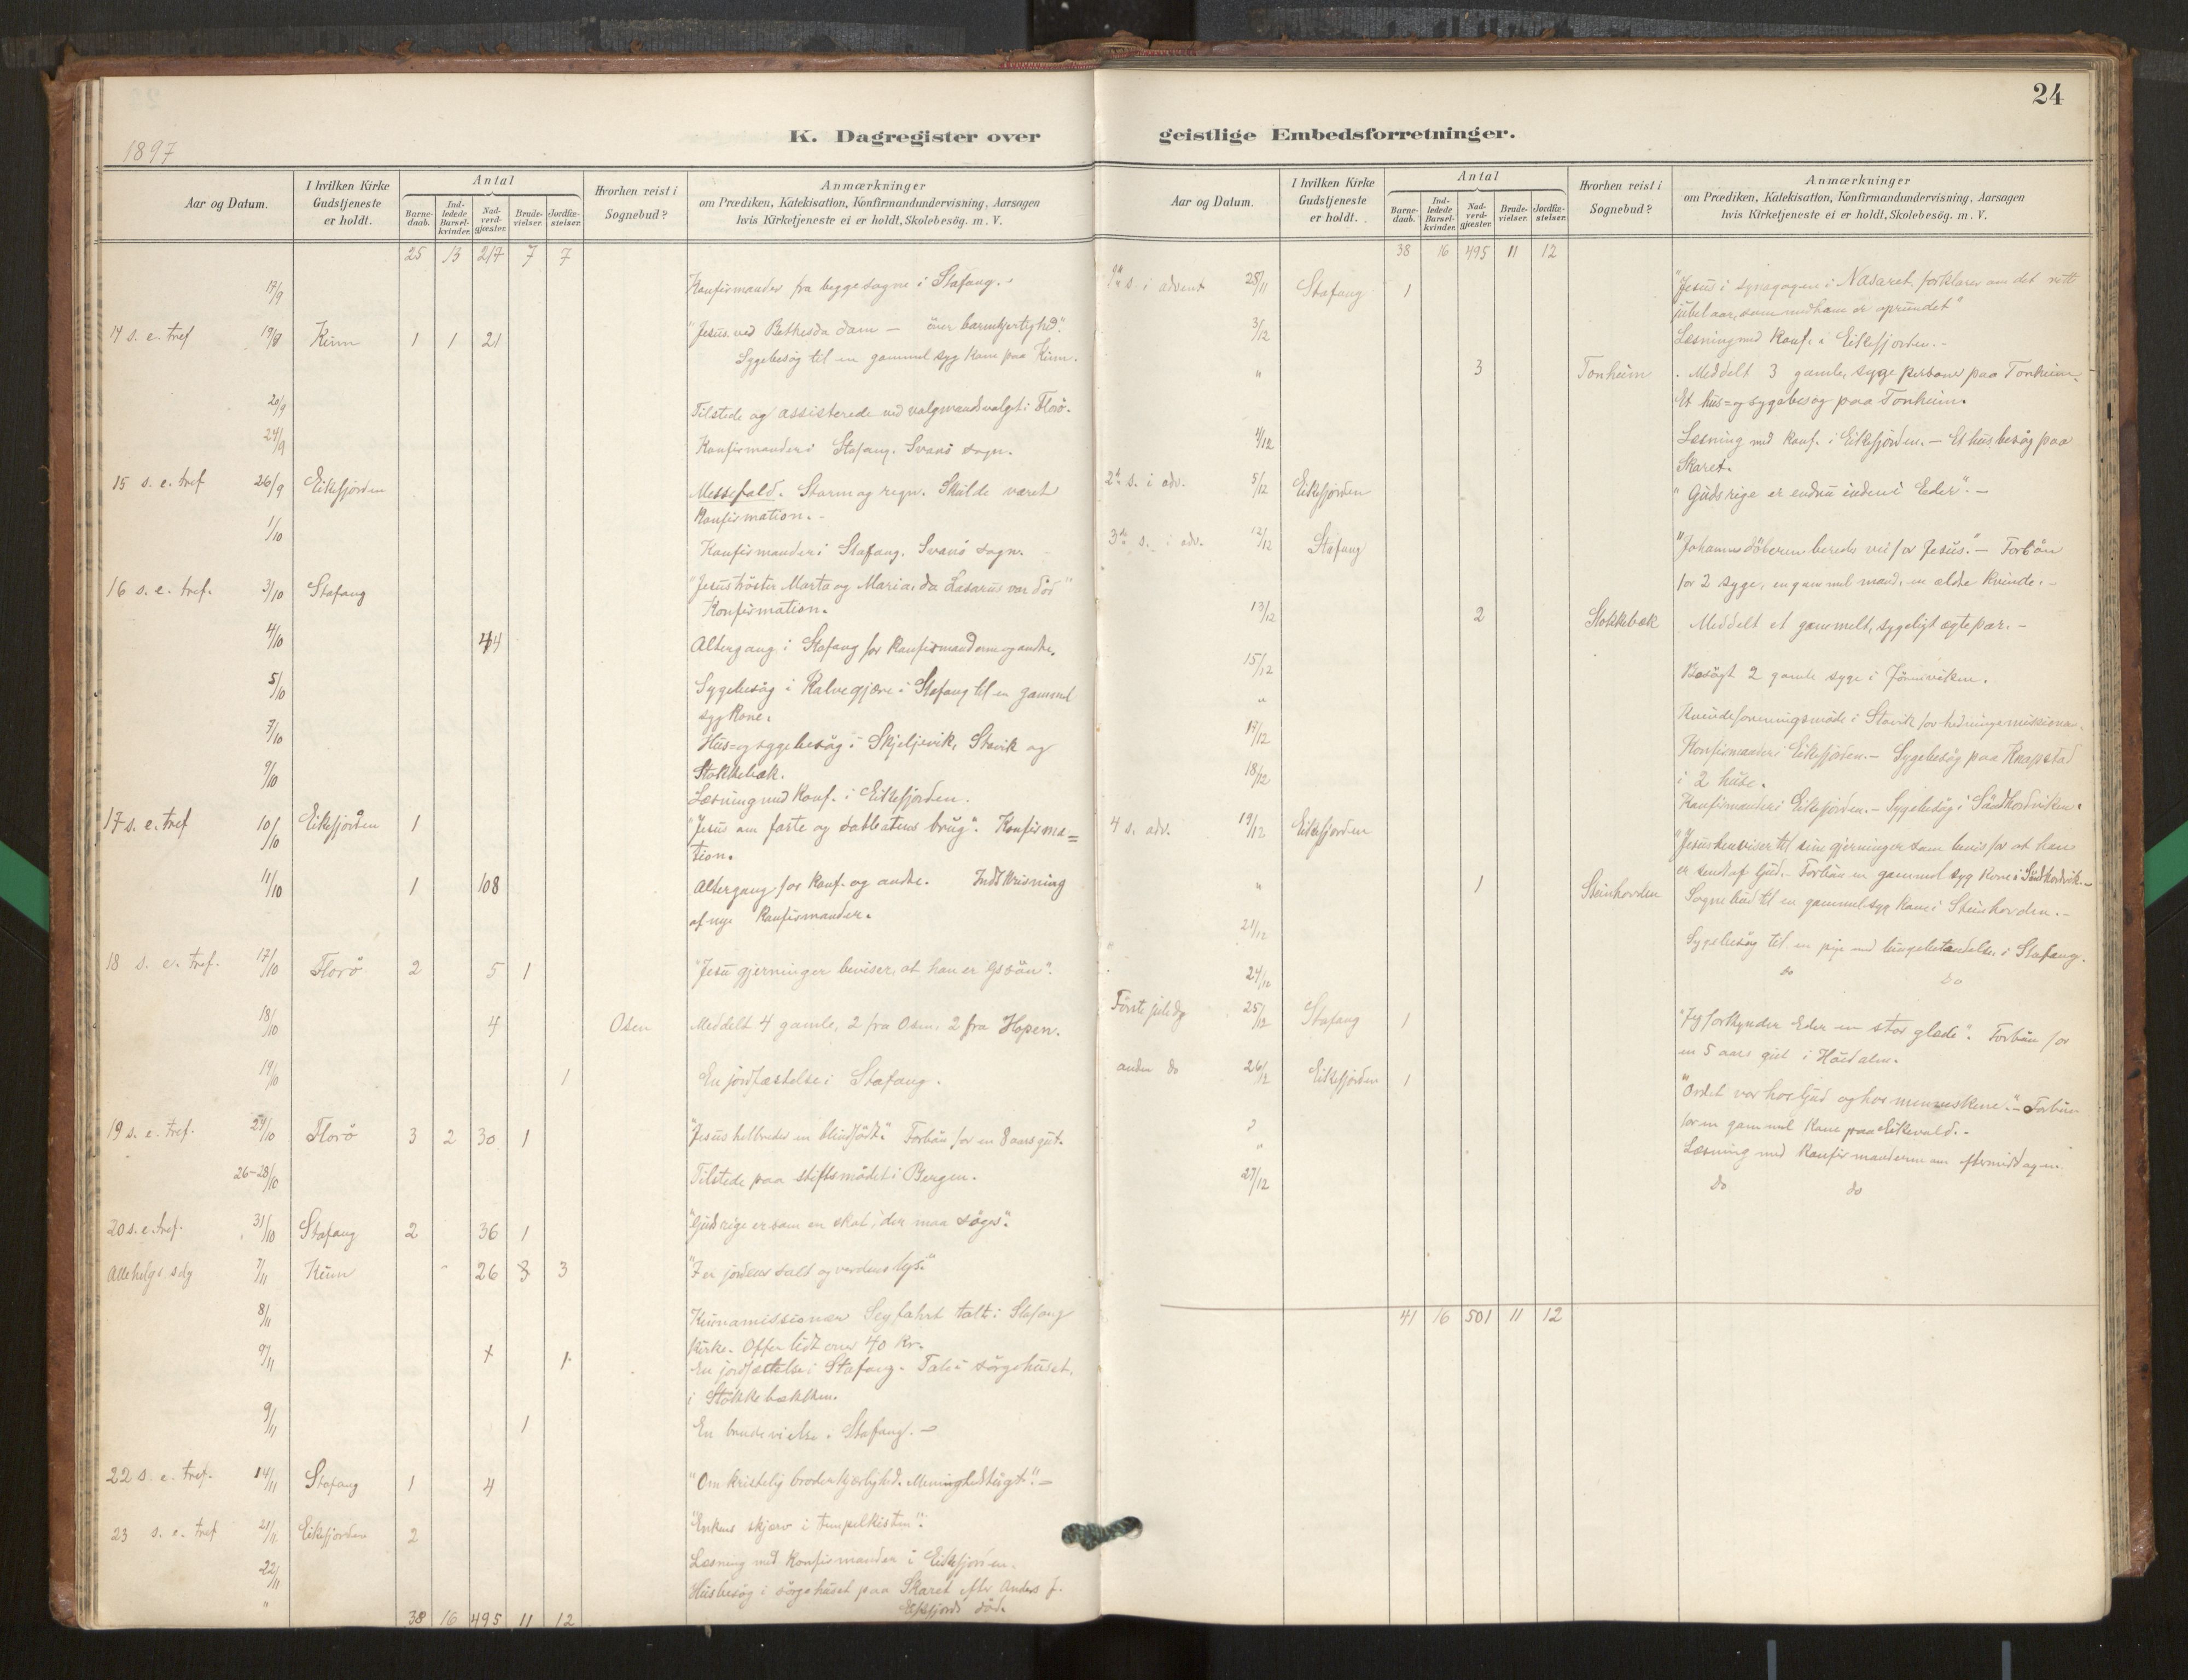 24
K. Dagregister over geistlige Embedsforretninger.
1897
Aar og Datum.
I hvilken Kirke Gudstjeneste er holdt.
Antal
Barne-daab.
Ind-ledede Barsel-kvinder.
Nad-verd-gjæster.
Brude-vielser.
Jordfæ-stelser.
Hvorhen reist i Sognebud?
Anmærkninger
om Prædiken, Katekisation, Konfirmandundervisning, Aarsagen
hvis Kirketjeneste ei er holdt, Skolebesög. m. V.
25 13 217 7 7
17/9 Konfirmander fra begge sogne i Stafang.
14 s. e. tref 19/9 Kinn 1 1 21 "Jesus ved Bethesda dam — över barmhjertighed".
Sygebesög til en gammel syg kone paa Kinn.
20/9 Tilstede og assisterede ved valgmandsvalget i Florö.
24/9 Konfirmander i Stafang. Svanö sogn.
15 s. e. tref 26/9 Eikefjorden Messefald. Storm og regn. Skulde været
Konfirmation.
1/10 Konfirmander i Stafang. Svanö sogn.
16 s. e. tref. 3/10 Stafang "Jesus tröster Marta og Maria, da Lasarus var död"
Konfirmation.
4/10 44 Altergang i Stafang for konfirmanderne og andre.
5/10 Sygebesög i Kalvegjære i Stafang til en gammel
syg kone.
7/10 Hus- og sygebesög i Skjeljevik, Stavik og
Stokkebæk.
9/10 Læsning med konf. i Eikefjorden.
17 s. e. tref 10/10 Eikefjorden 1 "Jesus om faste og sabbatens brug". Konfirma=
tion.
11/10 1 108 Altergang for konf. og andre. Indskrivning
af nye konfirmander.
18 s. e. tref. 17/10 Florö 2 5 1 "Jesu gjerninger beviser, at han er Gs sön".
18/10 4 Osen Meddelt 4 gamle, 2 fra Osen, 2 fra Hopen.
19/10 1 En jordfæstelse i Stafang.
19 s. e. tref. 24/10 Florö 3 2 30 1 "Jesus helbreder en blindfödt". Forbön for en 8 aars gut.
26-28/10 Tilstede paa stiftsmödet i Bergen.
20 s. e. tref. 31/10 Stafang 2 36 1 "Guds rige er som en skat, der maa söges".
Allehelgs sdg 7/11 Kinn 26 3 3 "I er jordens salt og verdens lys."
8/11 Kinamissionær Seyfahrt talte i Stafang
kirke. Offer lidt over 40 Kr.
9/11 1 En jordfæstelse i Stafang. Tale i sörgehuset
i Stokkebækken.
9/11 1 En brudevielse i Stafang.
22 s. e. tref. 14/11 Stafang 1 4 "Om kristelig broderkjærlighed. Menighedstugt".
23 s. e. tref 21/11 Eikefjorden 2 "Enkens skjærv i tempelkisten".
22/11 Læsning med konfirmander i Eikefjorden.
" Husbesög i sörgehuset paa Skaret efter Anders J.
Eikefjords död.
38 16 495 11 12
Aar og Datum.
I hvilken Kirke Gudstjeneste er holdt.
Antal
Barne-daab.
Ind-ledede Barsel-kvinder.
Nad-verd-gjæster.
Brude-vielser.
Jordfæ-stelser.
Hvorhen reist i Sognebud?
Anmærkninger
om Prædiken, Katekisation, Konfirmandundervisning, Aarsagen
hvis Kirketjeneste ei er holdt, Skolebesög. m. V.
38 16 495 11 12
s. i advent 28/11 Stafang 1 "Jesus i synagogen i Nasaret, forklarer om det rette
jubelaar, som med ham er oprundet"
3/12 Læsning med konf. i Eikefjorden.
" 3 Tonheim Meddelt 3 gamle, syge personer paa Tonheim.
Et hus- og sygebesög paa Tonheim.
4/12 Læsning med konf. i Eikefjorden. — Et husbesög paa
Skaret.
2de s. i adv. 5/12 Eikefjorden "Guds rige er endnu inden i Eder". —
3de s. i adv. 12/12 Stafang "Johannes döberen bereder vei for Jesus." — Forbön
for 2 syge, en gammel mand, en ældre kvinde.
13/12 2 Stokkebæk Meddelt et gammelt, sygeligt ægtepar. —
15/12 Besögt 2 gamle syge i
" Kvindeforeningsmöde i Stavik for hedningemissionen.
17/12 Konfirmander i Eikefjorden. — Sygebesög paa Knapstad
i 2 huse.
18/12 Konfirmander i Eikefjorden. — Sygebesög i
4 s. adv. 19/12 Eikefjorden "Jesus henviser til sine gjerninger som bevis for at han
er sendt af Gud. — Forbön en gammel syg kone i
" 1 Steinhovden Sognebud til en gammel syg kone i Steinhovden. —
21/12 Sygebesög til en pige med lungebetændelse i Stafang.
24/12 do do
Förste juledg 25/12 Stafang 1 "Jeg forkynder Eder en stor glæde". Forbön for
en 5 aars gut i Höidalen.
anden do 26/12 Eikefjorden 1 "Ordet var hos Gud og hos menneskene". — Forbön
for en gammel kone paa Eikevold. —
" Læsning med konfirmanderne om eftermiddagen
27/12 do do
41 16 501 11 12